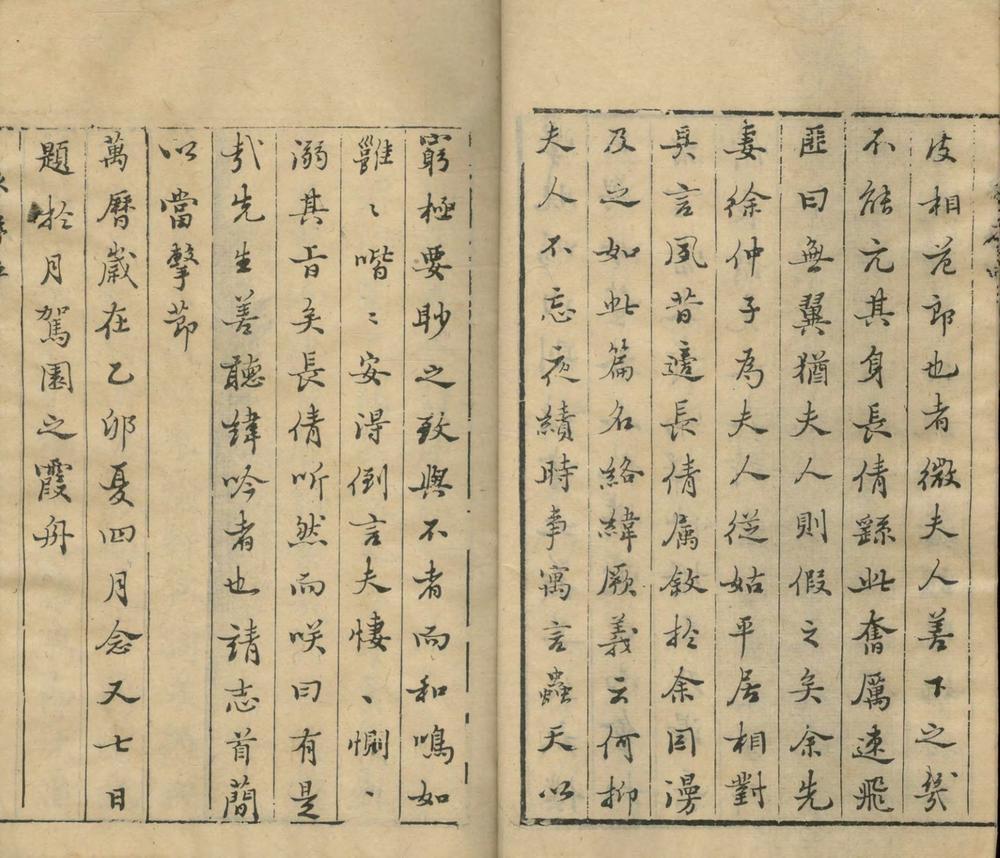 皮相范郎也者微夫人善下之幾
不能亢其身長倩繇此奮厲速飛
匪曰無翼猶夫人則假之矣余先
妻徐仲子為夫人從姑平居相對
與言風昔遠長倩属敘於余因漫
及之如此篇名絡緯厥義云何抑
夫人不忘夜績時事寓言蟲天以
窮極要眇之致與不者而和鳴如
雝〻喈〻安得倒言夫悽〻惻〻
溺其旨矣長倩听然而咲曰有是
㢤先生善聽緯吟者也請志首簡
以當擊節
萬曆歲在乙卯夏四月念又七日
題於月駕園之霞舟